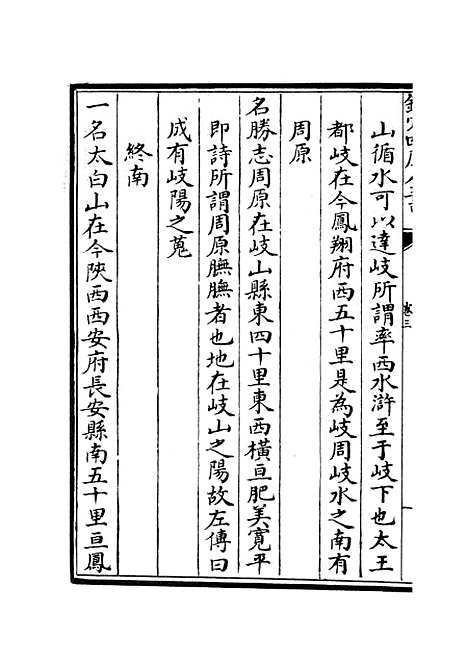 卷三
山循水可以達岐所謂率西水滸至于岐下也太王
都岐在今鳳翔府西五十里是為岐周岐水之南有
周原
名勝志周原在岐山縣東四十里東西橫亘肥美寬平
即詩所謂周原膴膴者也地在岐山之陽故左傳曰
成有岐陽之蒐
終南
一名太白山在今陝西西安府長安縣南五十里亘鳳